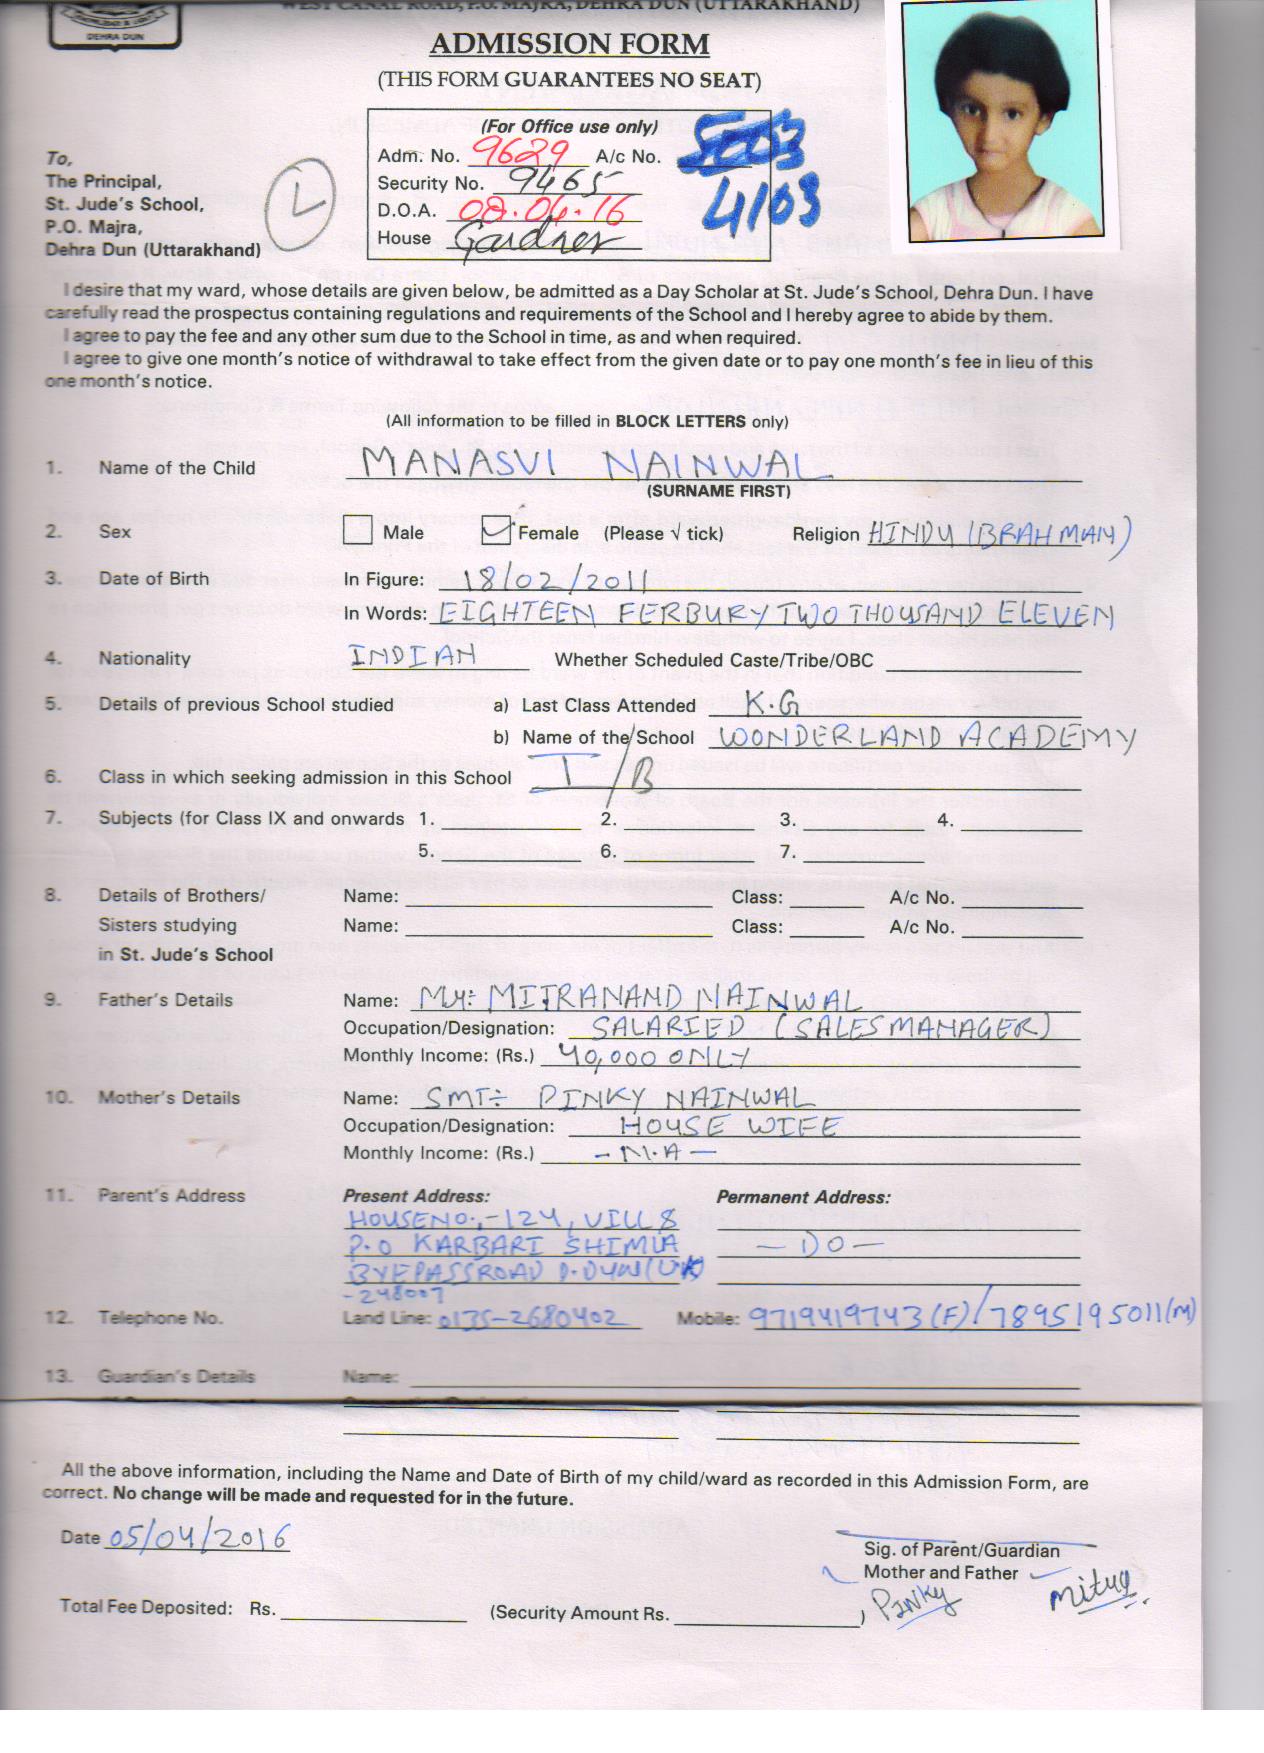 DEHRA DUN
WEST CANAL ROAD, P.O. MAJRA, DEHRA DUN (UTTARAKHAND)
ADMISSION FORM
(THIS FORM GUARANTEES NO SEAT)
(For Office use only)
Adm. No. 9629 A/c No.
4103
Security No. 9465
D.O.A. 08.04.16
House Gardner
To,
The Principal,
St. Jude's School,
P.O. Majra,
Dehra Dun (Uttarakhand)
L
I desire that my ward, whose details are given below, be admitted as a Day Scholar at St. Jude's School, Dehra Dun. I have
carefully read the prospectus containing regulations and requirements of the School and I hereby agree to abide by them.
I agree to pay the fee and any other sum due to the School in time, as and when required.
I agree to give one month's notice of withdrawal to take effect from the given date or to pay one month's fee in lieu of this
one month's notice.
(All information to be filled in BLOCK LETTERS only)
1. Name of the Child MANASVI NAINWAL
(SURNAME FIRST)
2. Sex Male Female (Please √ tick) Religion HINDU (BRAHMAN)
3. Date of Birth In Figure: 18/02/2011
In Words: EIGHTEEN FERBURY TWO THOUSAND ELEVEN
4. Nationality INDIAN Whether Scheduled Caste/Tribe/OBC
5. Details of previous School studied a) Last Class Attended K.G
b) Name of the School WONDERLAND ACADEMY
6. Class in which seeking admission in this School I/B
7. Subjects (for Class IX and onwards 1. 2. 3. 4.
5. 6. 7.
8. Details of Brothers/ Name: Class: A/c No.
Sisters studying Name: Class: A/c No.
in St. Jude's School
9. Father's Details Name: Mr:- MITRANAND NAINWAL
Occupation/Designation: SALARIED (SALES MANAGER)
Monthly Income: (Rs.) 40,000 ONLY
10. Mother's Details Name: SMT:- PINKY NAINWAL
Occupation/Designation: HOUSE WIFE
Monthly Income: (Rs.) - N.A -
11. Parent's Address Present Address: Permanent Address:
HOUSE NO.,-124, VILL &
P.O KARBARI SHIMLA - DO -
BYEPASSROAD D.DUN (UK)
-248007
12. Telephone No. Land Line: 0135-2680402 Mobile: 9719419743(F)/7895195011(M)
13. Guardian's Details Name:
All the above information, including the Name and Date of Birth of my child/ward as recorded in this Admission Form, are
correct. No change will be made and requested for in the future.
Date 05/04/2016
Sig. of Parent/Guardian
Mother and Father
Pinky
Total Fee Deposited: Rs. (Security Amount Rs. )